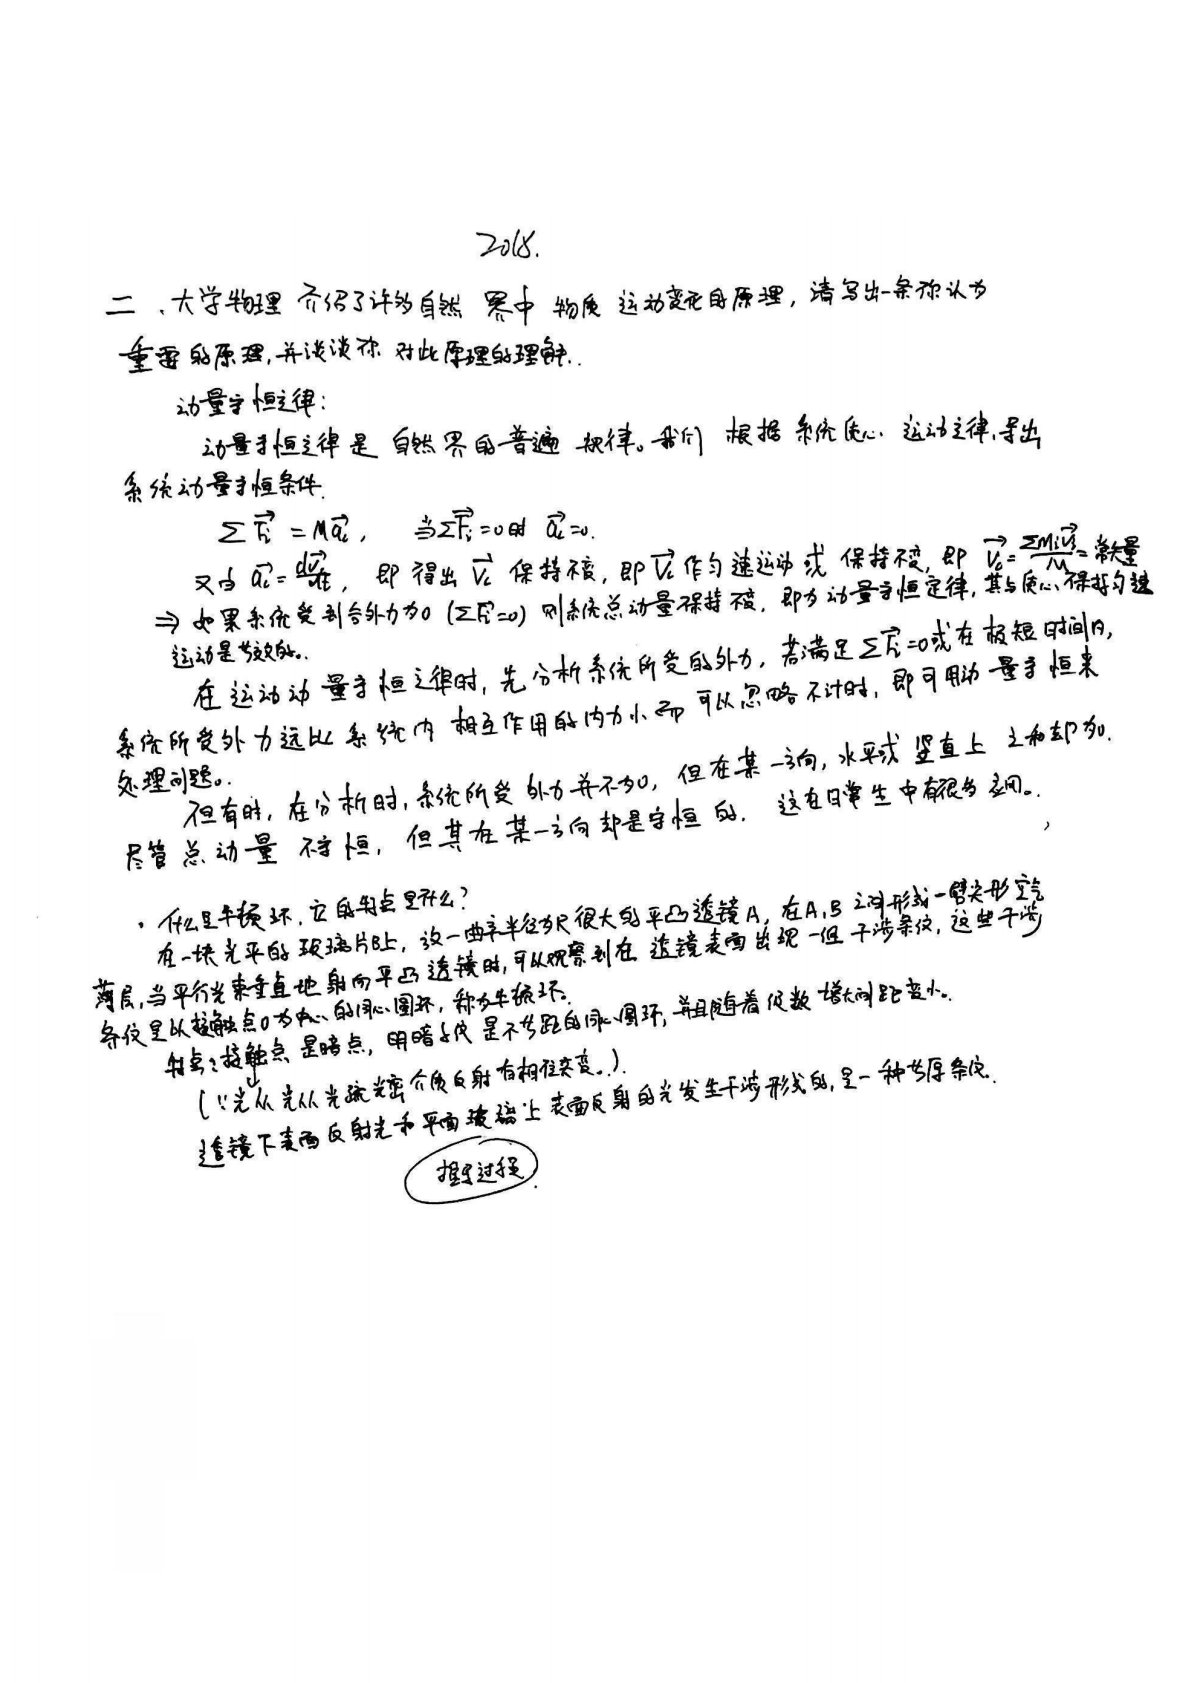 2018.
二、大学物理介绍了许多自然界中物质运动变化的原理，请写出一条你认为
重要的原理，并谈谈你对此原理的理解.
动量守恒定律：
动量守恒定律是自然界的普遍规律。我们根据系统质心运动定律，导出
系统动量守恒条件.
∑F⃗i = Ma⃗c， 当∑F⃗i=0时 a⃗c=0.
又由 a⃗c=dv⃗c/dt，即得出 v⃗c 保持不变，即 v⃗c 作匀速运动或保持不变，即 v⃗c=∑Miv⃗i/M=常矢量
⇒ 如果系统受到合外力为0 (∑F⃗i=0) 则系统总动量保持不变，即为动量守恒定律，其与质心保持匀速
运动是等效的.
在运动动量守恒定律时，先分析系统所受的外力，若满足∑F⃗i=0或在极短时间内，
系统所受外力远比系统内相互作用的内力小而可以忽略不计时，即可用动量守恒来
处理问题。
但有时，在分析时，系统所受外力并不为0，但在某一方向，水平或竖直上之和却为0.
尽管总动量不守恒，但其在某一方向却是守恒的. 这在日常生中有很多应用.
· 什么是牛顿环，它的特点是什么？
在一块光平的玻璃片B上，放一曲率半径为R很大的平凸透镜A，在A,B之间形成一劈尖形空气
薄层，当平行光束垂直地射向平凸透镜时，可以观察到在透镜表面出现一组干涉条纹，这些干涉
条纹是以接触点O为中心的同心圆环，称为牛顿环.
特点：接触点是暗点，明暗条纹是不等距的同心圆环，并且随着级数增大间距变小.
(∵光从光从光疏光密介质反射有相位突变.)
透镜下表面反射光和平面玻璃上表面反射的光发生干涉形成的，是一种等厚条纹.
推导过程.